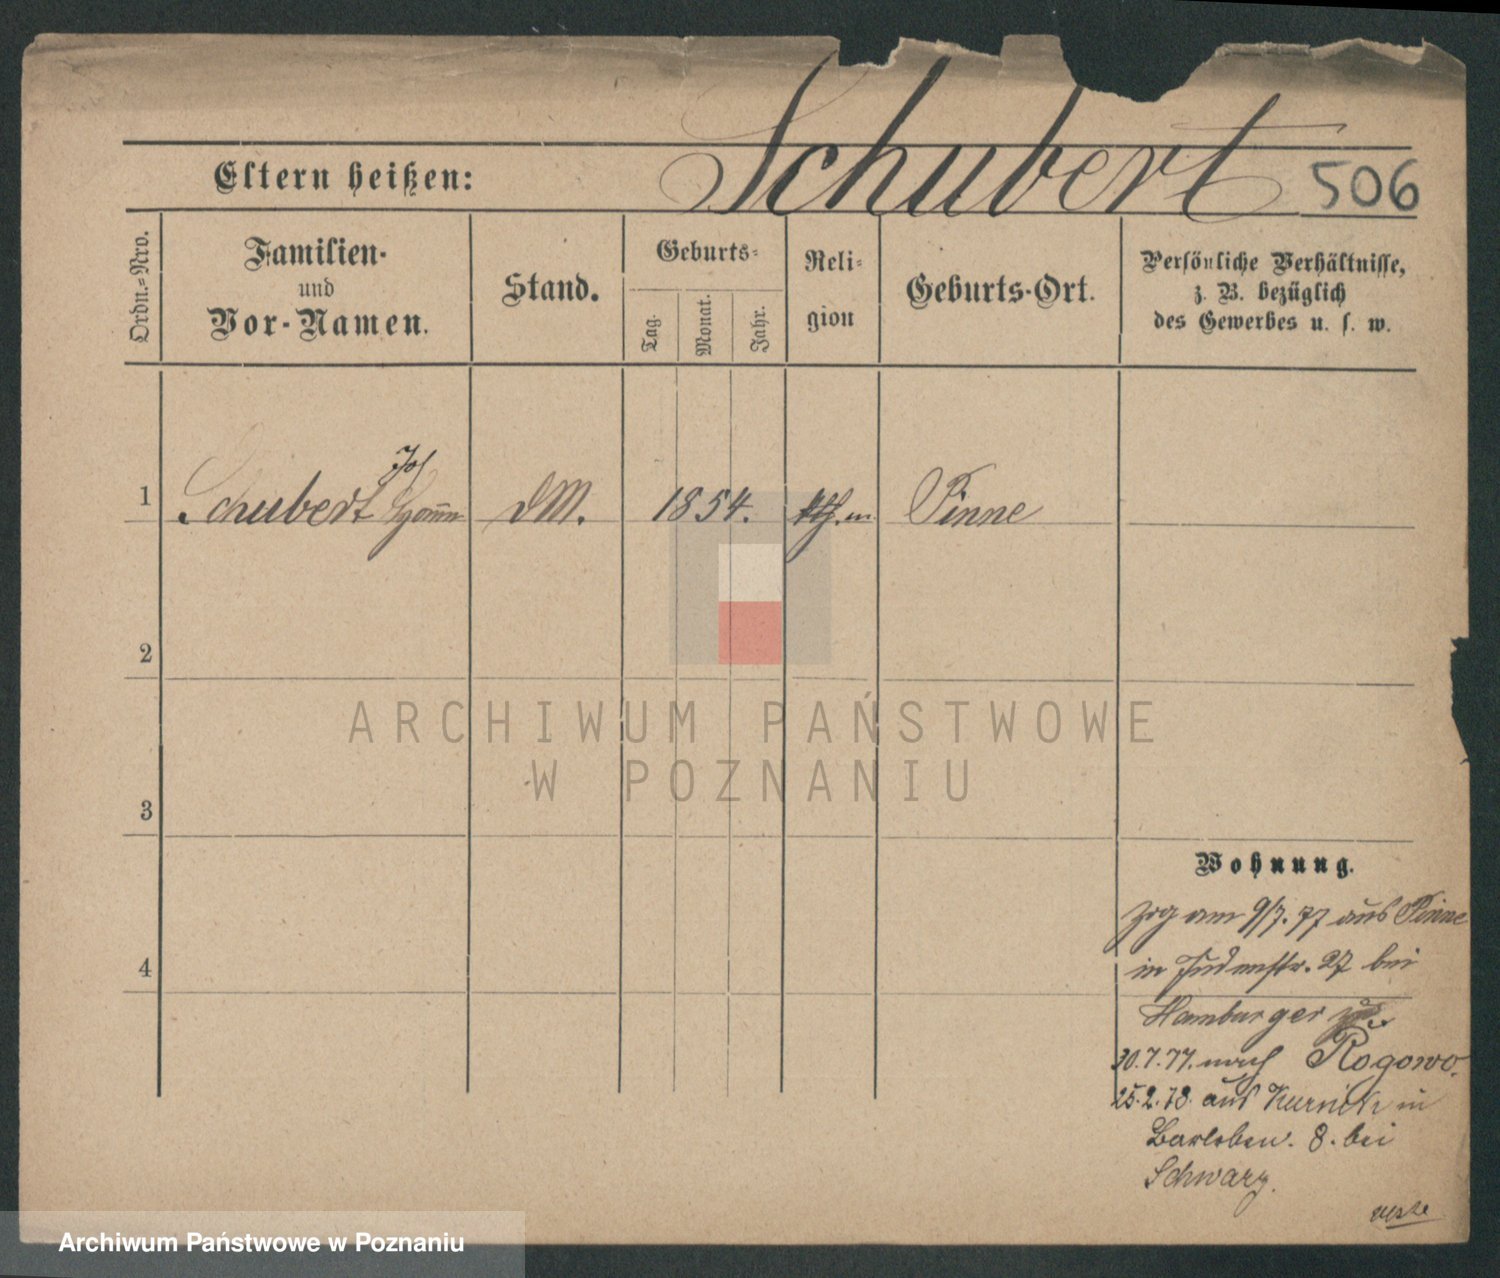 Schubert
506
Eltern heißen:
Ordn.-Nro.
Familien-
und
Vor-Namen.
Stand.
Geburts-
Tag.
Monat.
Jahr.
Reli-
gion
Geburts-Ort.
Persönliche Verhältnisse,
z. B. bezüglich
des Gewerbes u. s. w.
Joh
1 Schubert DM. 1854. Pinne
2
ARCHIWUM PAŃSTWOWE
W POZNANIU
3
Wohnung.
Zog am 9/7. 77 aus Pinne
4
in Judenstr. 27 bei
Hamburger
30.7.77. nach Rogowo.
25.2.78. aus Kurnik in
Barleben. 8. bei
Schwarz.
Archiwum Państwowe w Poznaniu